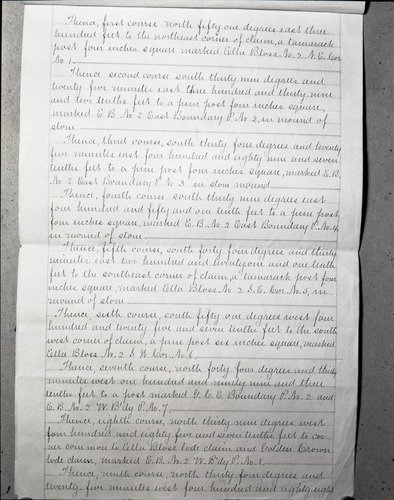 Thence, first course north fifty one degrees east three
hundred feet to the northeast corner of claim, a tamarack
post four inches square marked Ella Bloss No. 2 N. E. Cor.
No 1.
Thence second course south thirty nine degrees and
twenty five minutes east three hundred and thirty nine
and two tenths feet to a pine post four inches square,
marked E. B. No. 2 East Boundary P. No. 2, in mound of
stone
Thence, third course, south thirty four degrees and twenty
five minutes east four hundred and eighty nine and seven
tenths feet to a pine post four inches square, marked E. B.
No. 2 East Boundary P. No 3 in stone mound
Thence, fourth course south thirty nine degrees east
four hundred and fifty and one tenth feet to a pine post
four inches square, marked E. B. No. 2 East Boundary P. No. 4,
in mound of stone
Thence, fifth course, south forty four degrees and thirty
minutes east two hundred and twenty one and one tenth
feet to the southeast corner of claim, a tamarack post four
inches square, marked Ella Bloss No. 2 S. E. Cor. No. 5, in
mound of stone
Thence, sixth course, south fifty one degrees west four
hundred and twenty five and seven tenths feet to the south
west corner of claim, a pine post six inches square, marked
Ella Bloss No. 2 S W. Cor. No. 6.
Thence, seventh course, north forty four degrees and thirty
minutes west one hundred and ninety nine and three
tenths feet to a post marked G. C. E. Boundary P. No. 2 and
E. B. No. 2 W. B'dy P. No. 7.
Thence, eighth course, north thirty nine degrees west
four hundred and eighty five and seven tenths feet to cor-
ner common to Ella Bloss lode claim and Golden Crown
lode claim, marked E. B. No. 2 W. B'dy P. No. 8.
Thence, ninth course, north thirty four degrees and
twenty-five minutes west four hundred and eighty eight